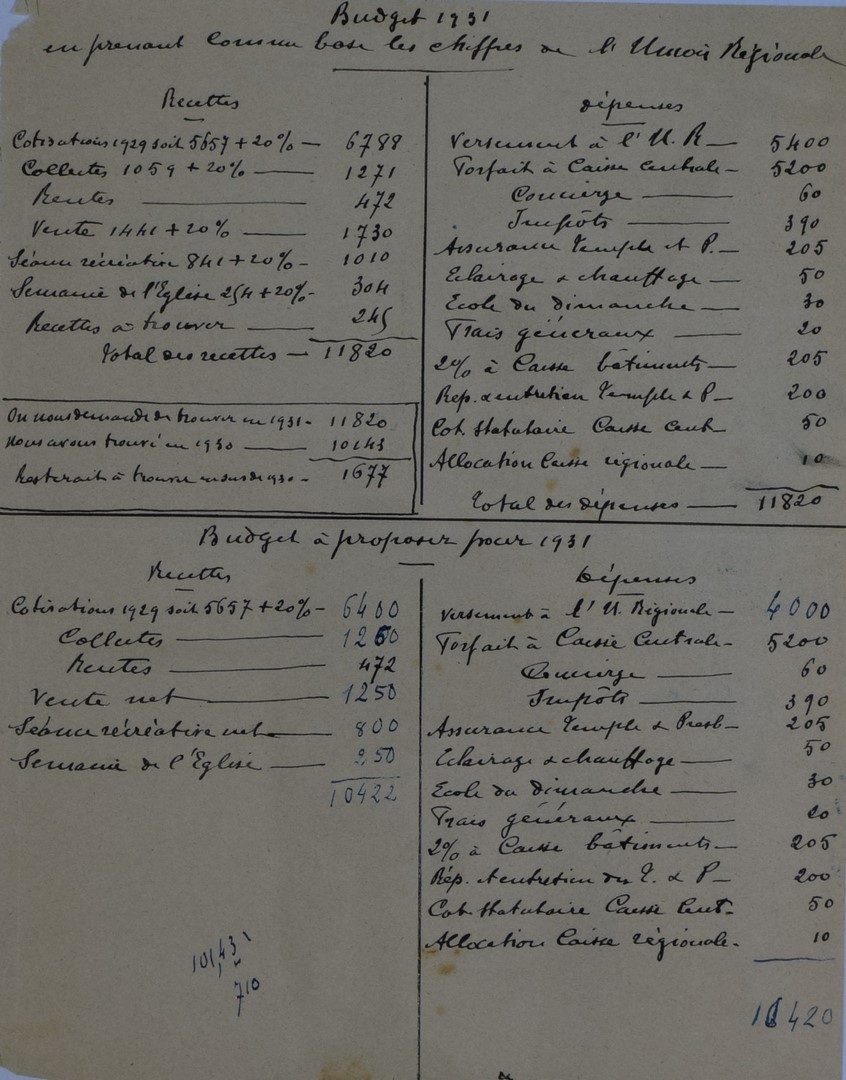 Budget 1931
en prenant comme base les chiffres de l'Union Régionale
Recettes
Cotisations 1929 soit 5657 + 20% — 6788
Collectes 1059 + 20% — 1271
Rentes — 472
Vente 1441 + 20% — 1730
Séance récréative 841 + 20% - 1010
Semaine de l'Eglise 254 + 20% - 304
Recettes à trouver — 245
Total des recettes — 11820
On nous demande de trouver en 1931 - 11820
Nous avons trouvé en 1930 — 10143
Resterait à trouver en sus de 1930 - 1677
dépenses
Versement à l'U. R — 5400
Forfait à Caisse Centrale - 5200
Concierge — 60
Impôts — 390
Assurance Temple et P. — 205
Eclairage & chauffage — 50
Ecole du dimanche — 30
Frais généraux — 20
2% à Caisse bâtiments — 205
Rep. & entretien Temple & P — 200
Cot. Statutaire Caisse Cent 50
Allocation Caisse régionale — 10
Total des dépenses — 11820
Budget à proposer pour 1931
Recettes
Cotisations 1929 soit 5657 + 20% - 6400
Collectes — 1250
Rentes — 472
Vente net — 1250
Séance récréative net — 800
Semaine de l'Eglise — 250
10422
10143
710
Dépenses
Versement à l'U. Régionale — 4000
Forfait à Caisse Centrale - 5200
Concierge — 60
Impôts — 390
Assurance Temple & Presb - 205
Eclairage & chauffage — 50
Ecole du dimanche — 30
Frais généraux — 20
2% à Caisse bâtiments — 205
Rép. et entretien du T. & P — 200
Cot. Statutaire Caisse Cent. 50
Allocation Caisse régionale - 10
10420